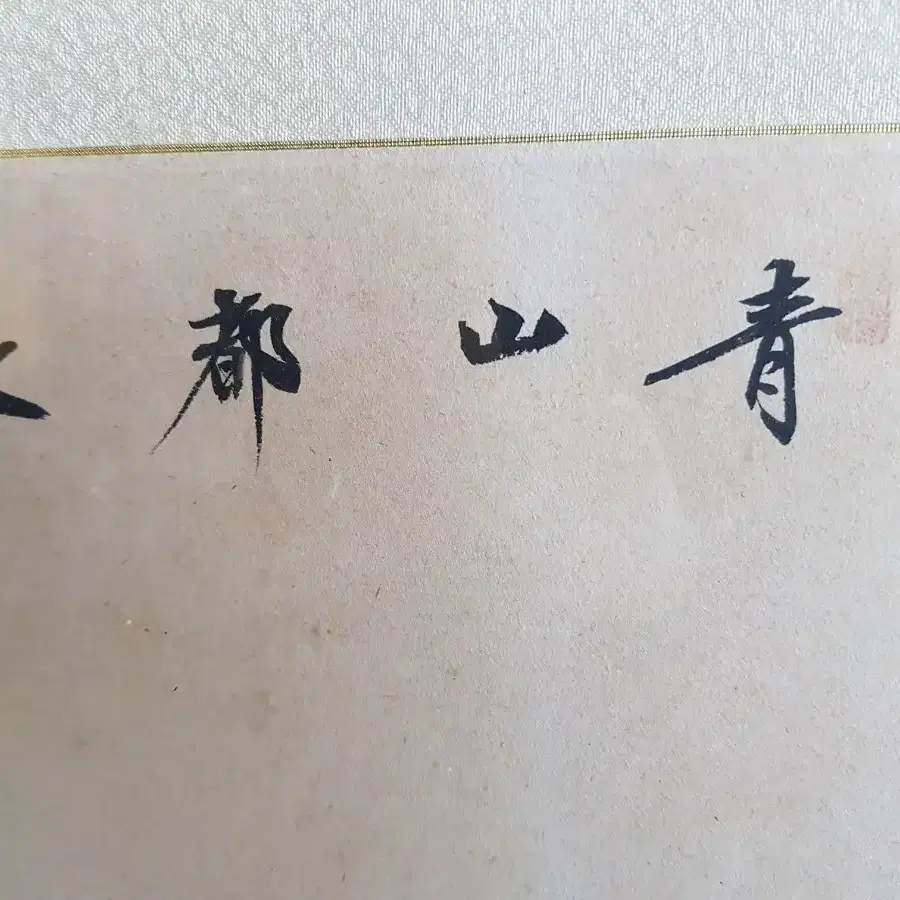 青山都